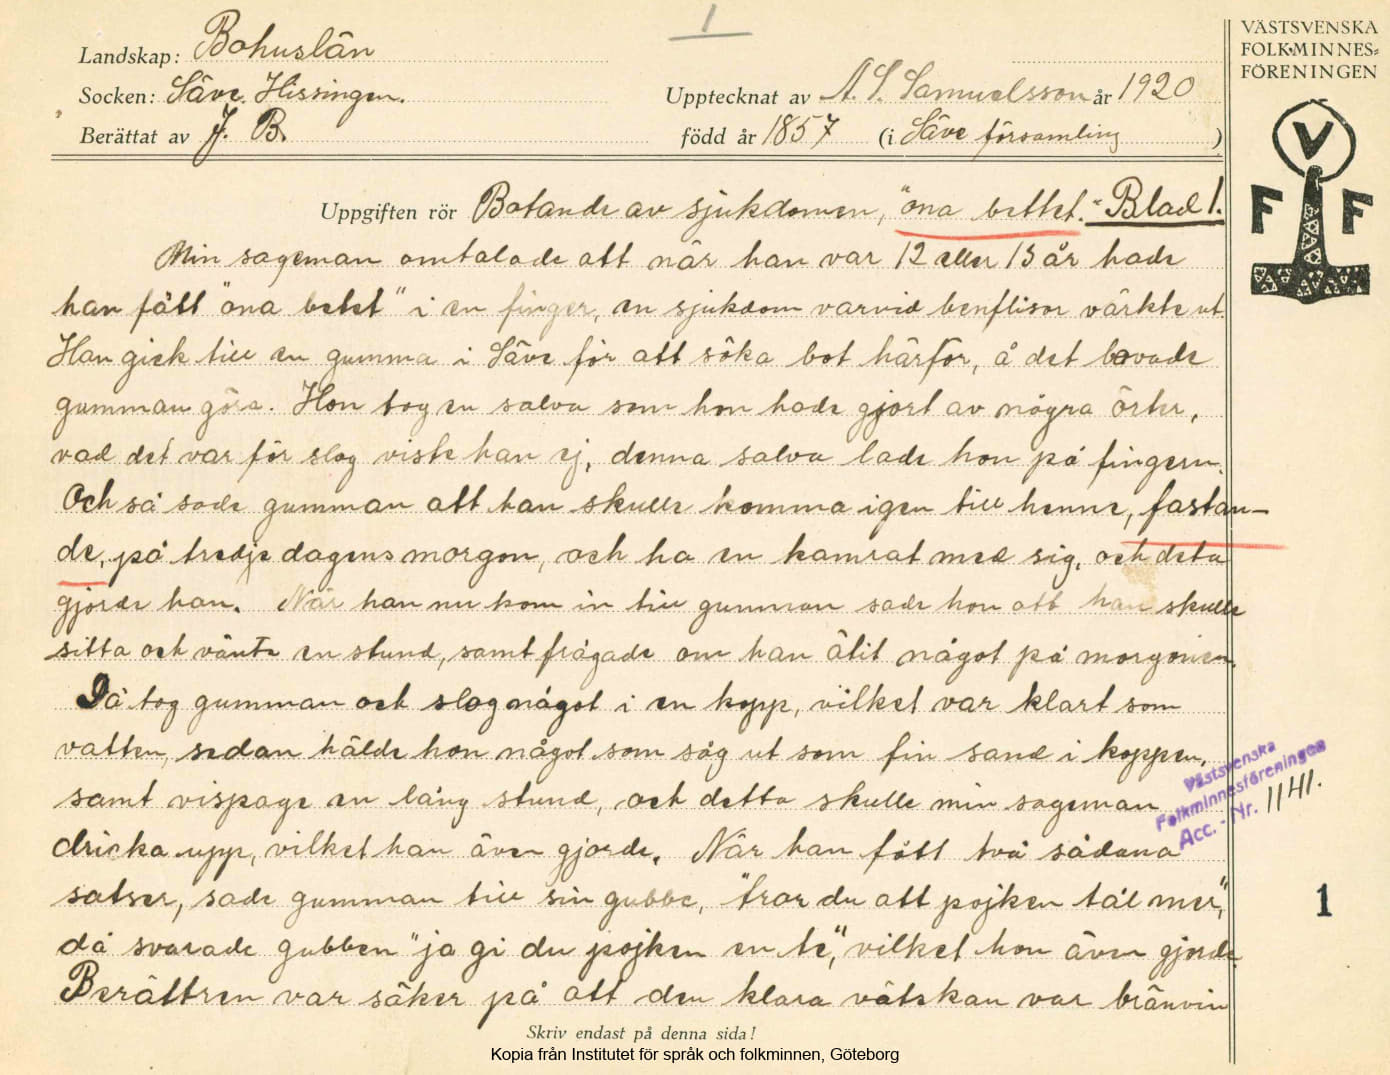 1
VÄSTSVENSKA
FOLKMINNES=
FÖRENINGEN
V
F F
Landskap: Bohuslän
Socken: Säve. Hissingen.
Upptecknat av A. S. Samuelsson år 1920
Berättat av J. B.
född år 1857 (i Säve församling )
Uppgiften rör Botande av sjukdomen, "ona bettet." Blad 1.
Min sageman omtalade att när han var 12 eller 13 år hade
han fått "ona betet" i en finger, en sjukdom varvid benflisor värkte ut.
Han gick till en gumma i Säve för att söka bot härför, å det lovade
gumman göra. Hon tog en salva som hon hade gjort av några örter,
vad det var för slag viste han ej, denna salva lade hon på fingern.
Och så sade gumman att han skulle komma igen till henne, fastan-
de, på tredje dagens morgon, och ha en kamrat med sig, och deta
gjorde han. När han nu kom in till gumman sade hon att han skulle
sitta och vänta en stund, samt frågade om han ätit något på morgonen.
Då tog gumman och slog något i en kopp, vilket var klart som
vatten, sedan hälde hon något som såg ut som fin sand i koppen,
samt vispage en lång stund, och detta skulle min sageman
dricka upp, vilket han även gjorde. När han fått två sådana
satser, sade gumman till sin gubbe, "tror du att pojken tål mer",
då svarade gubben "ja gi du pojken en te", vilket hon även gjorde.
Berättren var säker på att den klara vätskan var bränvin
Västsvenska
Folkminnesföreningen
Acc. - Nr. 1141.
1
Skriv endast på denna sida!
Kopia från Institutet för språk och folkminnen, Göteborg